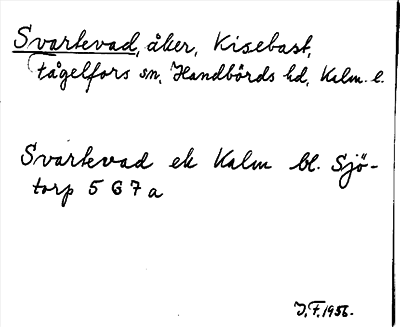 Svartevad, åker, Kisebast,
Fågelfors sn, Handbörds hd, Kalm. l.
Svartevad ek Kalm bl. Sjö-
torp 5 G 7 a
J.F. 1956.